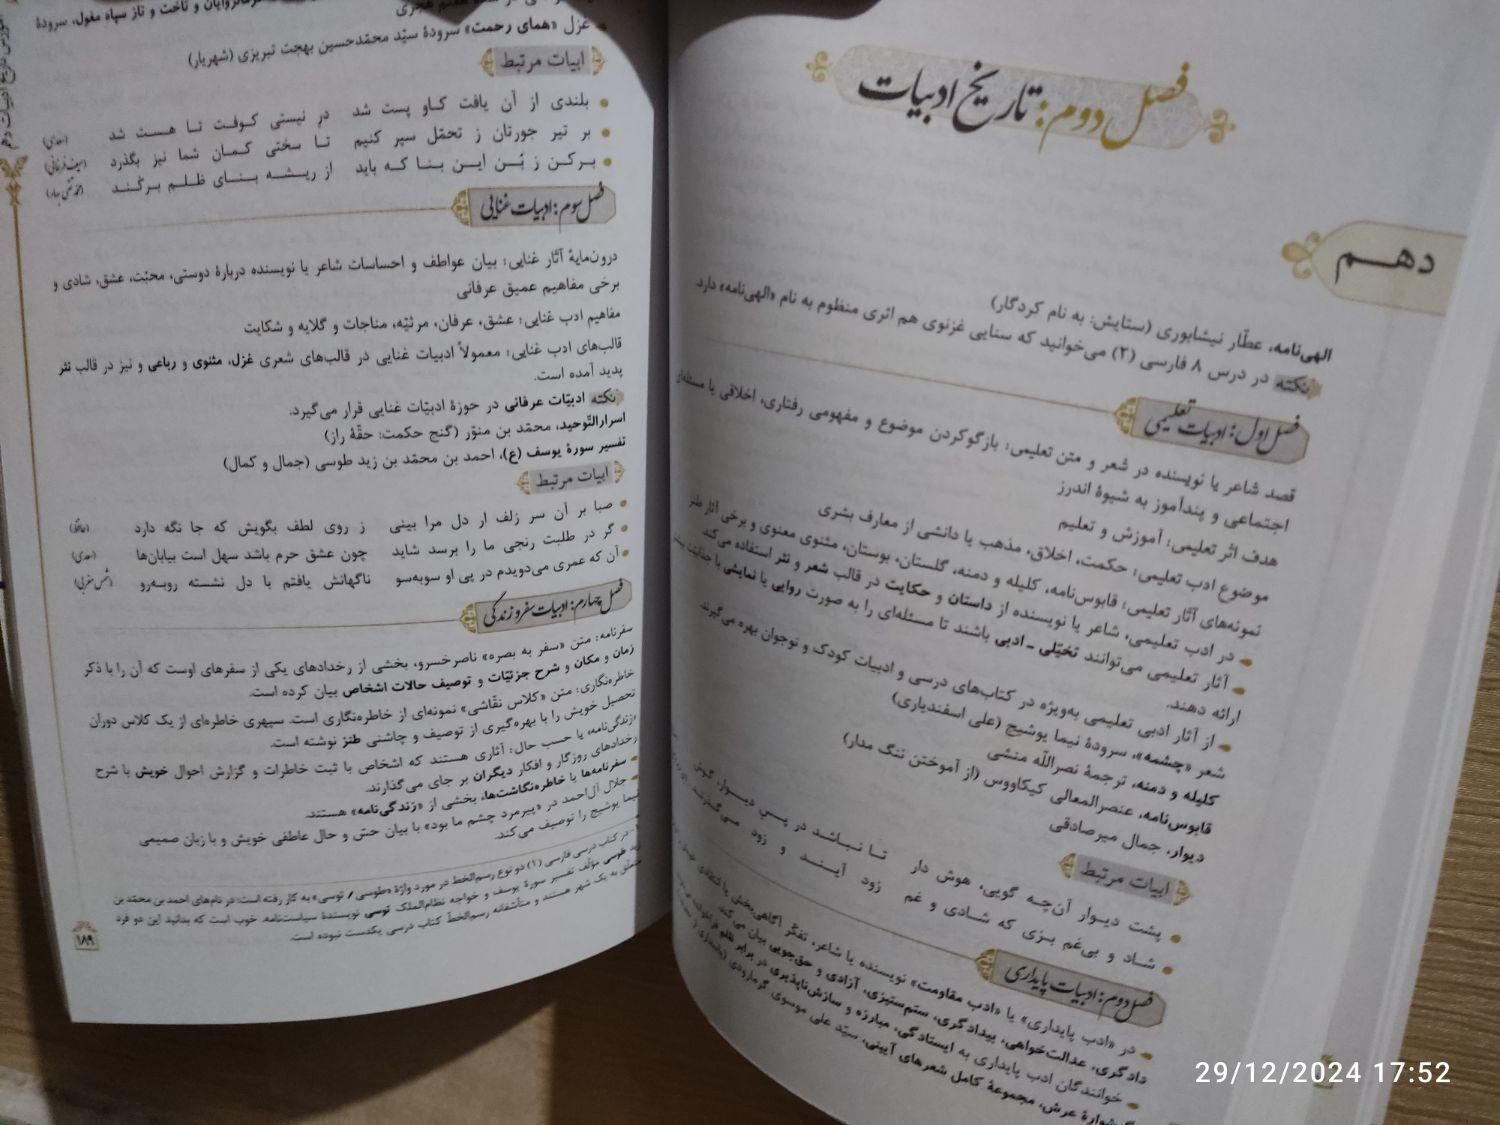 فصل دوم: تاریخ ادبیات
دهم
الهی‌نامه، عطّار نیشابوری (ستایش: به نام کردگار)
نکته در درس ۸ فارسی (۲) می‌خوانید که سنایی غزنوی هم اثری منظوم به نام «الهی‌نامه» دارد.
فصل اول: ادبیات تعلیمی
قصد شاعر یا نویسنده در شعر و متن تعلیمی: بازگوکردن موضوع و مفهومی رفتاری، اخلاقی یا مسئله‌ای
اجتماعی و پندآموز به شیوهٔ اندرز
هدف اثر تعلیمی: آموزش و تعلیم
موضوع ادب تعلیمی: حکمت، اخلاق، مذهب یا دانشی از معارف بشری
نمونه‌های آثار تعلیمی: قابوس‌نامه، کلیله و دمنه، گلستان، بوستان، مثنوی معنوی و برخی آثار طنز
• در ادب تعلیمی، شاعر یا نویسنده از داستان و حکایت در قالب شعر و نثر استفاده می‌کند.
• آثار تعلیمی می‌توانند تخیّلی ـ ادبی باشند تا مسئله‌ای را به صورت روایی یا نمایشی با جذابیت بیشتر
ارائه دهند.
• از آثار ادبی تعلیمی به‌ویژه در کتاب‌های درسی و ادبیات کودک و نوجوان بهره می‌گیرند.
شعر «چشمه»، سرودهٔ نیما یوشیج (علی اسفندیاری)
کلیله و دمنه، ترجمهٔ نصرالله منشی
قابوس‌نامه، عنصرالمعالی کیکاووس (از آموختن ننگ مدار)
دیوار، جمال میرصادقی
ابیات مرتبط
• پشت دیوار آن‌چه گویی، هوش دار تا نباشد در پس دیوار، گوش
• شاد و بی‌غم بزی که شادی و غم زود آیند و زود می‌گذرند
فصل دوم: ادبیات پایداری
• در «ادب پایداری» یا «ادب مقاومت» نویسنده یا شاعر، تفکّر آگاهی‌بخش یا انتقادی
دادگری، عدالت‌خواهی، بیدادگری، ستم‌ستیزی، آزادی و حق‌جویی بیان می‌کند.
• خوانندگان ادب پایداری به ایستادگی، مبارزه و سازش‌ناپذیری در برابر ظلم
گوشوارهٔ عرش، مجموعهٔ کامل شعرهای آیینی، سیّد علی موسوی گرمارودی
فرمانروایان و تاخت و تاز سپاه مغول، سرودهٔ
هجری
غزل «همای رحمت» سرودهٔ سیّد محمّدحسین بهجت تبریزی (شهریار)
ابیات مرتبط
• بلندی از آن یافت کاو پست شد درِ نیستی کوفت تا هست شد (سعدی)
• بر تیر جورتان ز تحمّل سپر کنیم تا سختی کمان شما نیز بگذرد (سیف فرغانی)
• برکن ز بُن این بنا که باید از ریشه بنای ظلم برکند (محمدتقی بهار)
فصل سوم: ادبیات غنایی
درون‌مایهٔ آثار غنایی: بیان عواطف و احساسات شاعر یا نویسنده دربارهٔ دوستی، محبّت، عشق، شادی و
برخی مفاهیم عمیق عرفانی
مفاهیم ادب غنایی: عشق، عرفان، مرثیّه، مناجات و گلایه و شکایت
قالب‌های ادب غنایی: معمولاً ادبیات غنایی در قالب‌های شعری غزل، مثنوی و رباعی و نیز در قالب نثر
پدید آمده است.
نکته ادبیّات عرفانی در حوزهٔ ادبیّات غنایی قرار می‌گیرد.
اسرارالتّوحید، محمّد بن منوّر (گنج حکمت: حقّهٔ راز)
تفسیر سورهٔ یوسف (ع)، احمد بن محمّد بن زید طوسی (جمال و کمال)
ابیات مرتبط
• صبا بر آن سر زلف ار دل مرا بینی ز روی لطف بگویش که جا نگه دارد (حافظ)
• گر در طلبت رنجی ما را برسد شاید چون عشق حرم باشد سهل است بیابان‌ها (سعدی)
• آن که عمری می‌دویدم در پی او سوبه‌سو ناگهانش یافتم با دل نشسته روبه‌رو (شمس مغربی)
فصل چهارم: ادبیات سفر و زندگی
سفرنامه: متن «سفر به بصره» ناصرخسرو، بخشی از رخدادهای یکی از سفرهای اوست که آن را با ذکر
زمان و مکان و شرح جزئیّات و توصیف حالات اشخاص بیان کرده است.
خاطره‌نگاری: متن «کلاس نقّاشی» نمونه‌ای از خاطره‌نگاری است. سپهری خاطره‌ای از یک کلاس دوران
تحصیل خویش را با بهره‌گیری از توصیف و چاشنی طنز نوشته است.
«زندگی‌نامه» یا حسب حال: آثاری هستند که اشخاص با ثبت خاطرات و گزارش احوال خویش یا شرح
رخدادهای روزگار و افکار دیگران بر جای می‌گذارند.
• سفرنامه‌ها یا خاطره‌نگاشت‌ها، بخشی از «زندگی‌نامه» هستند.
• جلال آل‌احمد در «پیرمرد چشم ما بود» با بیان حسّ و حال عاطفی خویش و با زبان صمیمی
نیما یوشیج را توصیف می‌کند.
در کتاب درسی فارسی (۱) دو نوع رسم‌الخط در مورد واژهٔ «طوسی / توسی» به کار رفته است: در نام‌های احمد بن محمّد بن
زید طوسی مؤلّف تفسیر سورهٔ یوسف و خواجه نظام‌الملک توسی نویسندهٔ سیاست‌نامه. خوب است که بدانید این دو فرد
متعلّق به یک شهر هستند و متأسّفانه رسم‌الخطّ کتاب درسی یکدست نبوده است.
۱۸۹
29/12/2024 17:52